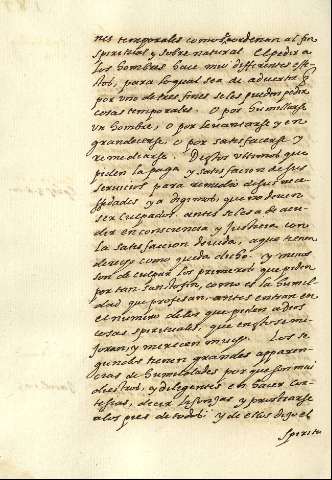 nes temporales como se ordenan al fin
spiritual y sobre natural. El pedir a
los hombres hace mui differentes effe-
tos, para lo qual sea de advertir q
por uno de tres fines se les pueden pedir
cosas temporales. O por humillarse
un hombre, o por levantarse y en
grandecerse, o por satisfacerse y
remediarse. Destos ultimos que
piden la paga y satisfacion de sus
servicios para remedio de sus nece
ssidades ya diximos, que no deven
ser culpados, antes se les a de acu-
dir en consciencia y Justicia con
la satisfacion devida, a que tienen
derecho como queda dicho. y menos
son de culpar los primeros que piden
por tan santo fin, como es la humil-
dad que profesan, antes entran en
el numero de los que piden a dios
cosas spirituales, que en esto se me-
joran, y merecen mucho. Los se-
gundos tienen grandes apparen-
cias de humildades por que son mui
diestros, y diligentes en hacer cor-
tesias, decir lisonjas y prostrarse
a los pies de todos: y de estos dijo el
Spiritu